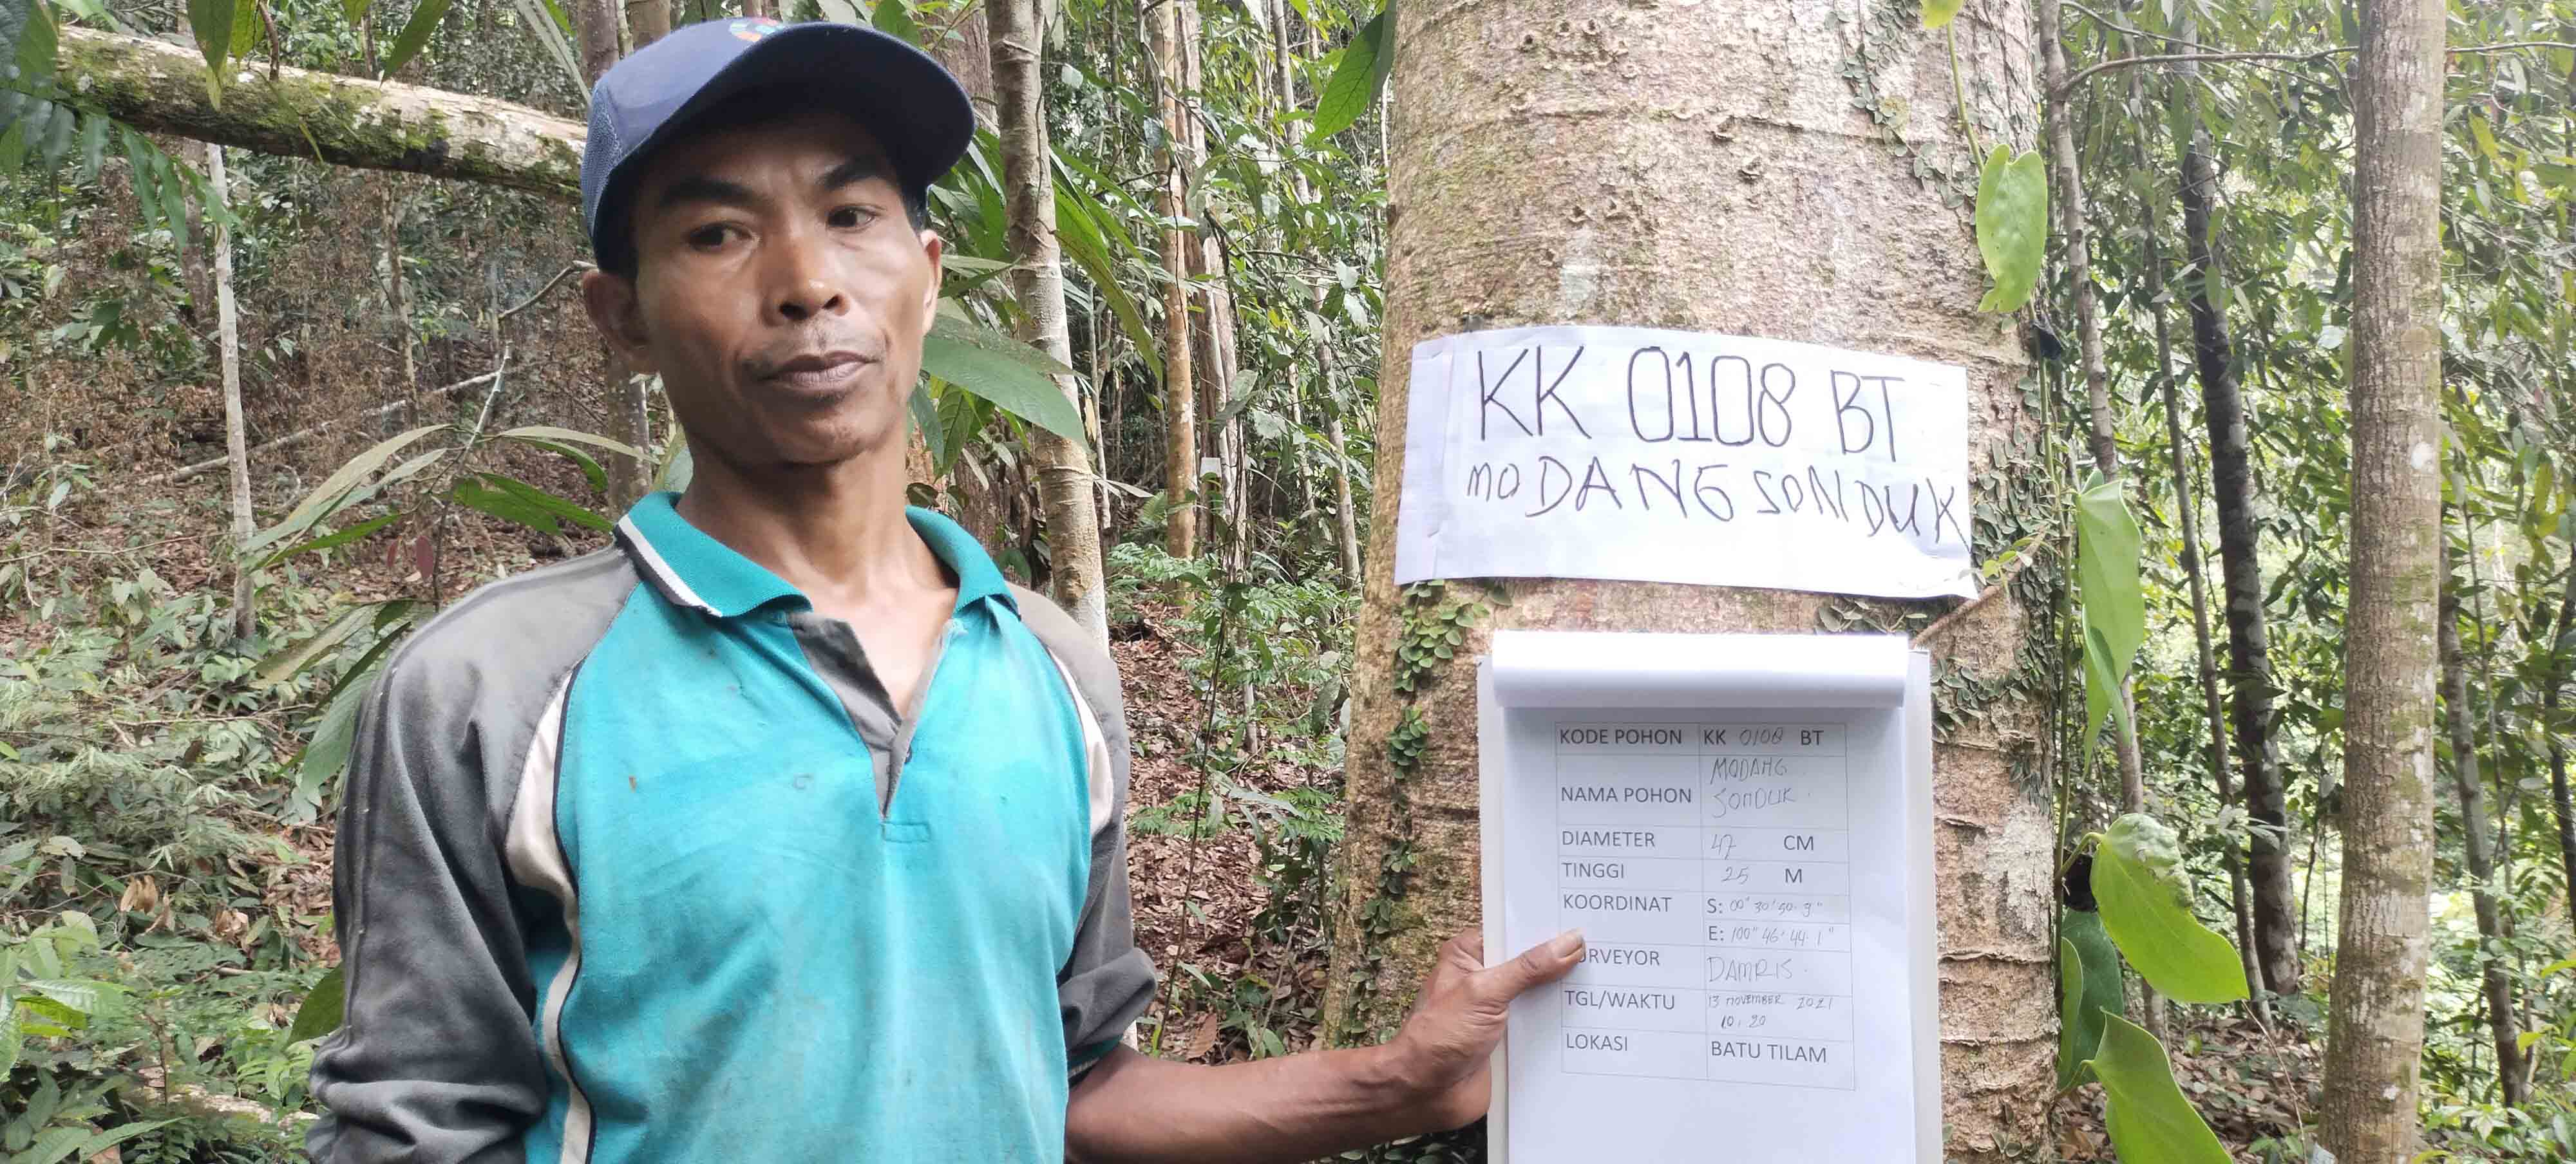 KK 0108 BT
MODANG SONDUK
KODE POHON KK 0108 BT
NAMA POHON MODANG SONDUK
DIAMETER 47 CM
TINGGI 25 M
KOORDINAT S: 00° 30' 50.3"
E: 100° 46' 44.1"
RVEYOR DAMRIS
TGL/WAKTU 13 NOVEMBER 2021
10.20
LOKASI BATU TILAM